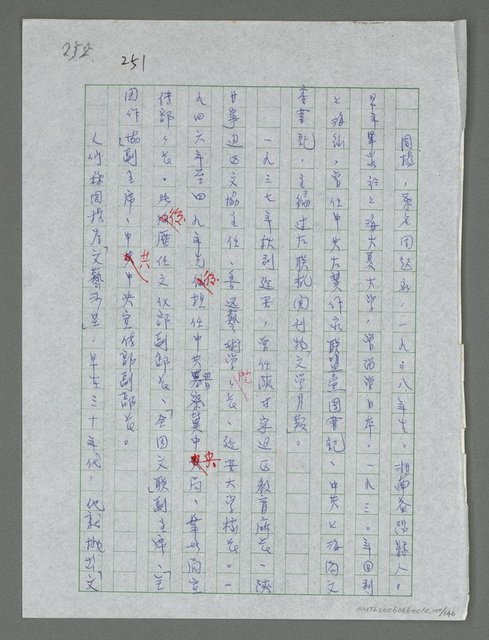 252
251
周揚，原名周起應，一九〇八年生，湖南益陽縣人。
早年畢業於上海大夏大學，曾留學日本。一九三〇年回到
上海後，曾任中共左翼作家聯盟黨團書記、中共上海局文
委書記，主編過左聯機關刊物「文學月報」。
一九三七年秋到延安，曾任陝甘寧邊區教育廳長、陝
甘寧邊區文協主任、魯迅藝術學院長、延安大學校長。一
九四六年至四九年先後擔任中共晉察冀中央局、華北局宣
傳部部長。此後歷任文化部副部長、「全國文聯」副主席、「全
國作協」副主席、中共中央宣傳部副部長。
人們稱周揚為「文藝沙皇」，早在三十年代，他就挑出「文
NMTL20060660010,100/146